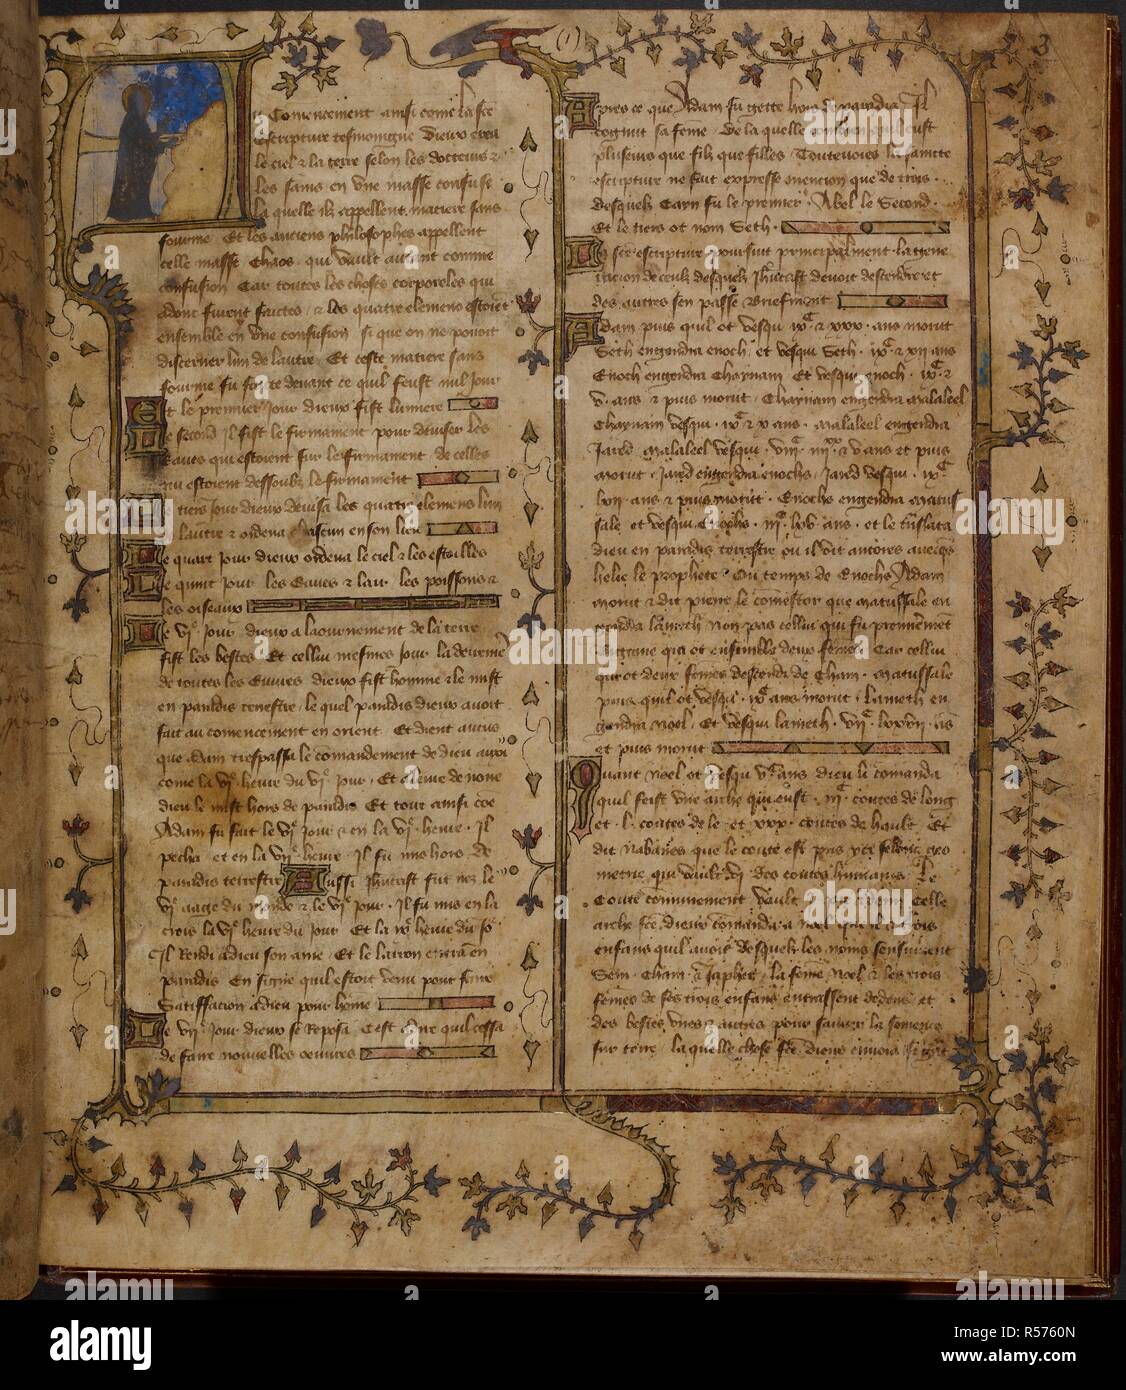 3
u Comencement ainsi come la ste
Escripture tesmoingne Dieux crea
le ciel & la terre selon les docteurs &
les sains en vne masse confuse
la quelle ilz appellent matiere sans
fourme Et les anciens philosophes appellent
celle masse Chaos qui vault autant comme
confusion Car toutes les choses corporeles qui
donc furent faictes & les quatre elemens estoiet
ensemble en vne confusion si que on ne pouoit
discerner lun de lautre Et ceste matiere sans
fourme fu faicte deuant ce quil feust nul jour
Et le premier jour dieux fist lumiere
Le second il fist le firmament pour deuiser les
Eaues qui estoient sur le firmament de celles
qui estoient dessoubz le firmament
Le tiers jour dieux deuisa les quatre elemens lun
de lautre & ordena chascun en son lieu
Le quart jour dieux ordena le ciel & les estoilles
Le quint jour les Eaues & lair les poissons &
les oiseaux
Le vje jour dieux a laournement de la terre
fist les bestes Et cellui mesmes jour la derreniere
de toutes les Euures dieux fist homme & le mist
en paradis terrestre le quel paradis dieux auoit
fait au comencement en orient Et dient aucus
que adam trespassa le comandement de dieu aussi
come la vje heure du vje jour Et a leure de none
dieu le mist hors de paradis Et tout ainsi coe
Adam fu fait le vje jour & en la vje heure Il
pecha et en la vije heure Il fu mis hors de
paradis terrestre Aussi Jhucrist fut nez le
vje aage du monde & le vje jour Il fu mis en la
crois la vje heure du jour Et la ixe heure du jo'
Il Rendi a dieu son ame Et le larron entra en
paradis En signe quil estoit venu pour faire
Satiffacion a dieu pour home
Le vije jour dieux se reposa Cest a dire quil cessa
de faire nouuelles oeuures
Apres ce que Adam fu gette hors de paradis Il
congnut sa feme De la quelle combien quil eust
plusieurs que filz que filles Touteuoies la saincte
escripture ne fait expresse mencion que de trois
desquelz Cayn fu le premier Abel le Second
Et le tiers ot nom Seth
La ste escripture poursuit principalment la gene
racion de ceulz desquelz Jhucrist deuoit descendre et
des autres sen passe briefment
Adam puis quil ot vesqu ixc & xxx ans morut
Seth engendra enoch et vesqui Seth ixc & xij ans
Enoch engendra Chaynam Et vesqui enoch ixc &
v ans & puis morut Chaynam engendra malaleel
Chaynam vesqui ixc & x ans malaleel engendra
Jared malaleel vesqui viijc iiijxx & v ans et puis
morut Jared engendra enochs Jared vesqui ixc
lxij ans & puis morut Enochs engendra matus
sale et vesqui Enochs iijc lxv ans et le translata
dieu en paradis terrestre ou il vit encores auecqs
helie le prophete Ou temps de Enochs Adam
morut & dit pierre le comestor que matussale en
gendra lameth non pas cellui qui fu premieremet
qui ot ensemble deux femes Car cellui
qui ot deux femes descendi de Cham matussale
puis quil ot vesqu ixc ans morut Lameth en
gendra noel Et vesqui lameth vijc lxxvij as
et puis morut
Quant noel ot vesqu vc ans dieu li comanda
quil feist vne arche qui eust iijc coutes de long
et l coutes de le et xxx coutes de hault Et
dit Rabanes que le coute est pris ycy selonc geo
metrie qui vault vj des coutes humains Le
Coute communement vault Celle
arche fce dieux comanda a noel a ses trois
enfans quil auoit desquelz les noms sensuiuent
Sem Cham & Japhet la feme noel & les trois
femes de ses trois enfans entrassent dedens et
des bestes vnes & autres pour sauuer la semence
sur terre la quelle chose fce dieux enuoia
alamy
Image ID: R5760N
www.alamy.com